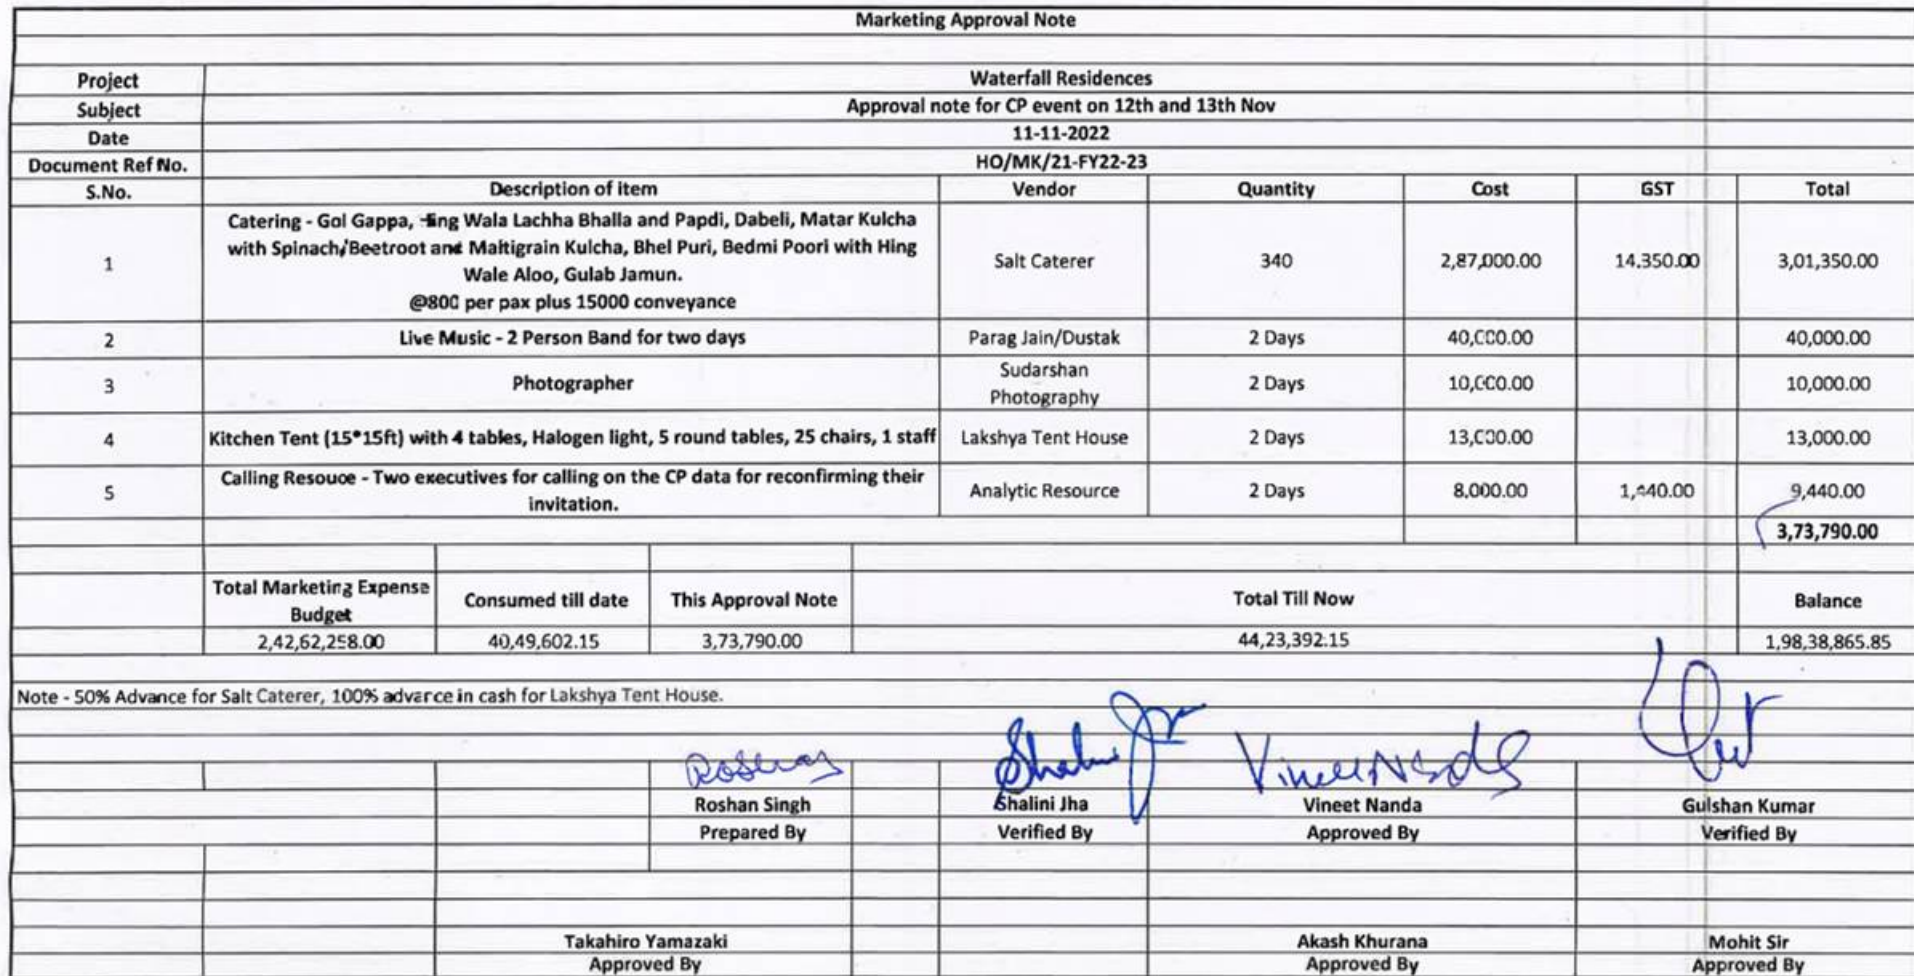 Marketing Approval Note
Project Waterfall Residences
Subject Approval note for CP event on 12th and 13th Nov
Date 11-11-2022
Document Ref No. HO/MK/21-FY22-23
S.No. Description of item Vendor Quantity Cost GST Total
Catering - Gol Gappa, Hing Wala Lachha Bhalla and Papdi, Dabeli, Matar Kulcha
with Spinach/Beetroot and Maltigrain Kulcha, Bhel Puri, Bedmi Poori with Hing
1 Wale Aloo, Gulab Jamun. Salt Caterer 340 2,87,000.00 14,350.00 3,01,350.00
@800 per pax plus 15000 conveyance
2 Live Music - 2 Person Band for two days Parag Jain/Dustak 2 Days 40,000.00 40,000.00
3 Photographer Sudarshan Photography 2 Days 10,000.00 10,000.00
4 Kitchen Tent (15*15ft) with 4 tables, Halogen light, 5 round tables, 25 chairs, 1 staff Lakshya Tent House 2 Days 13,000.00 13,000.00
5 Calling Resouce - Two executives for calling on the CP data for reconfirming their invitation. Analytic Resource 2 Days 8,000.00 1,440.00 9,440.00
3,73,790.00
Total Marketing Expense Budget Consumed till date This Approval Note Total Till Now Balance
2,42,62,258.00 40,49,602.15 3,73,790.00 44,23,392.15 1,98,38,865.85
Note - 50% Advance for Salt Caterer, 100% advance in cash for Lakshya Tent House.
Vineet Nanda
Roshan Singh Shalini Jha Vineet Nanda Gulshan Kumar
Prepared By Verified By Approved By Verified By
Takahiro Yamazaki Akash Khurana Mohit Sir
Approved By Approved By Approved By